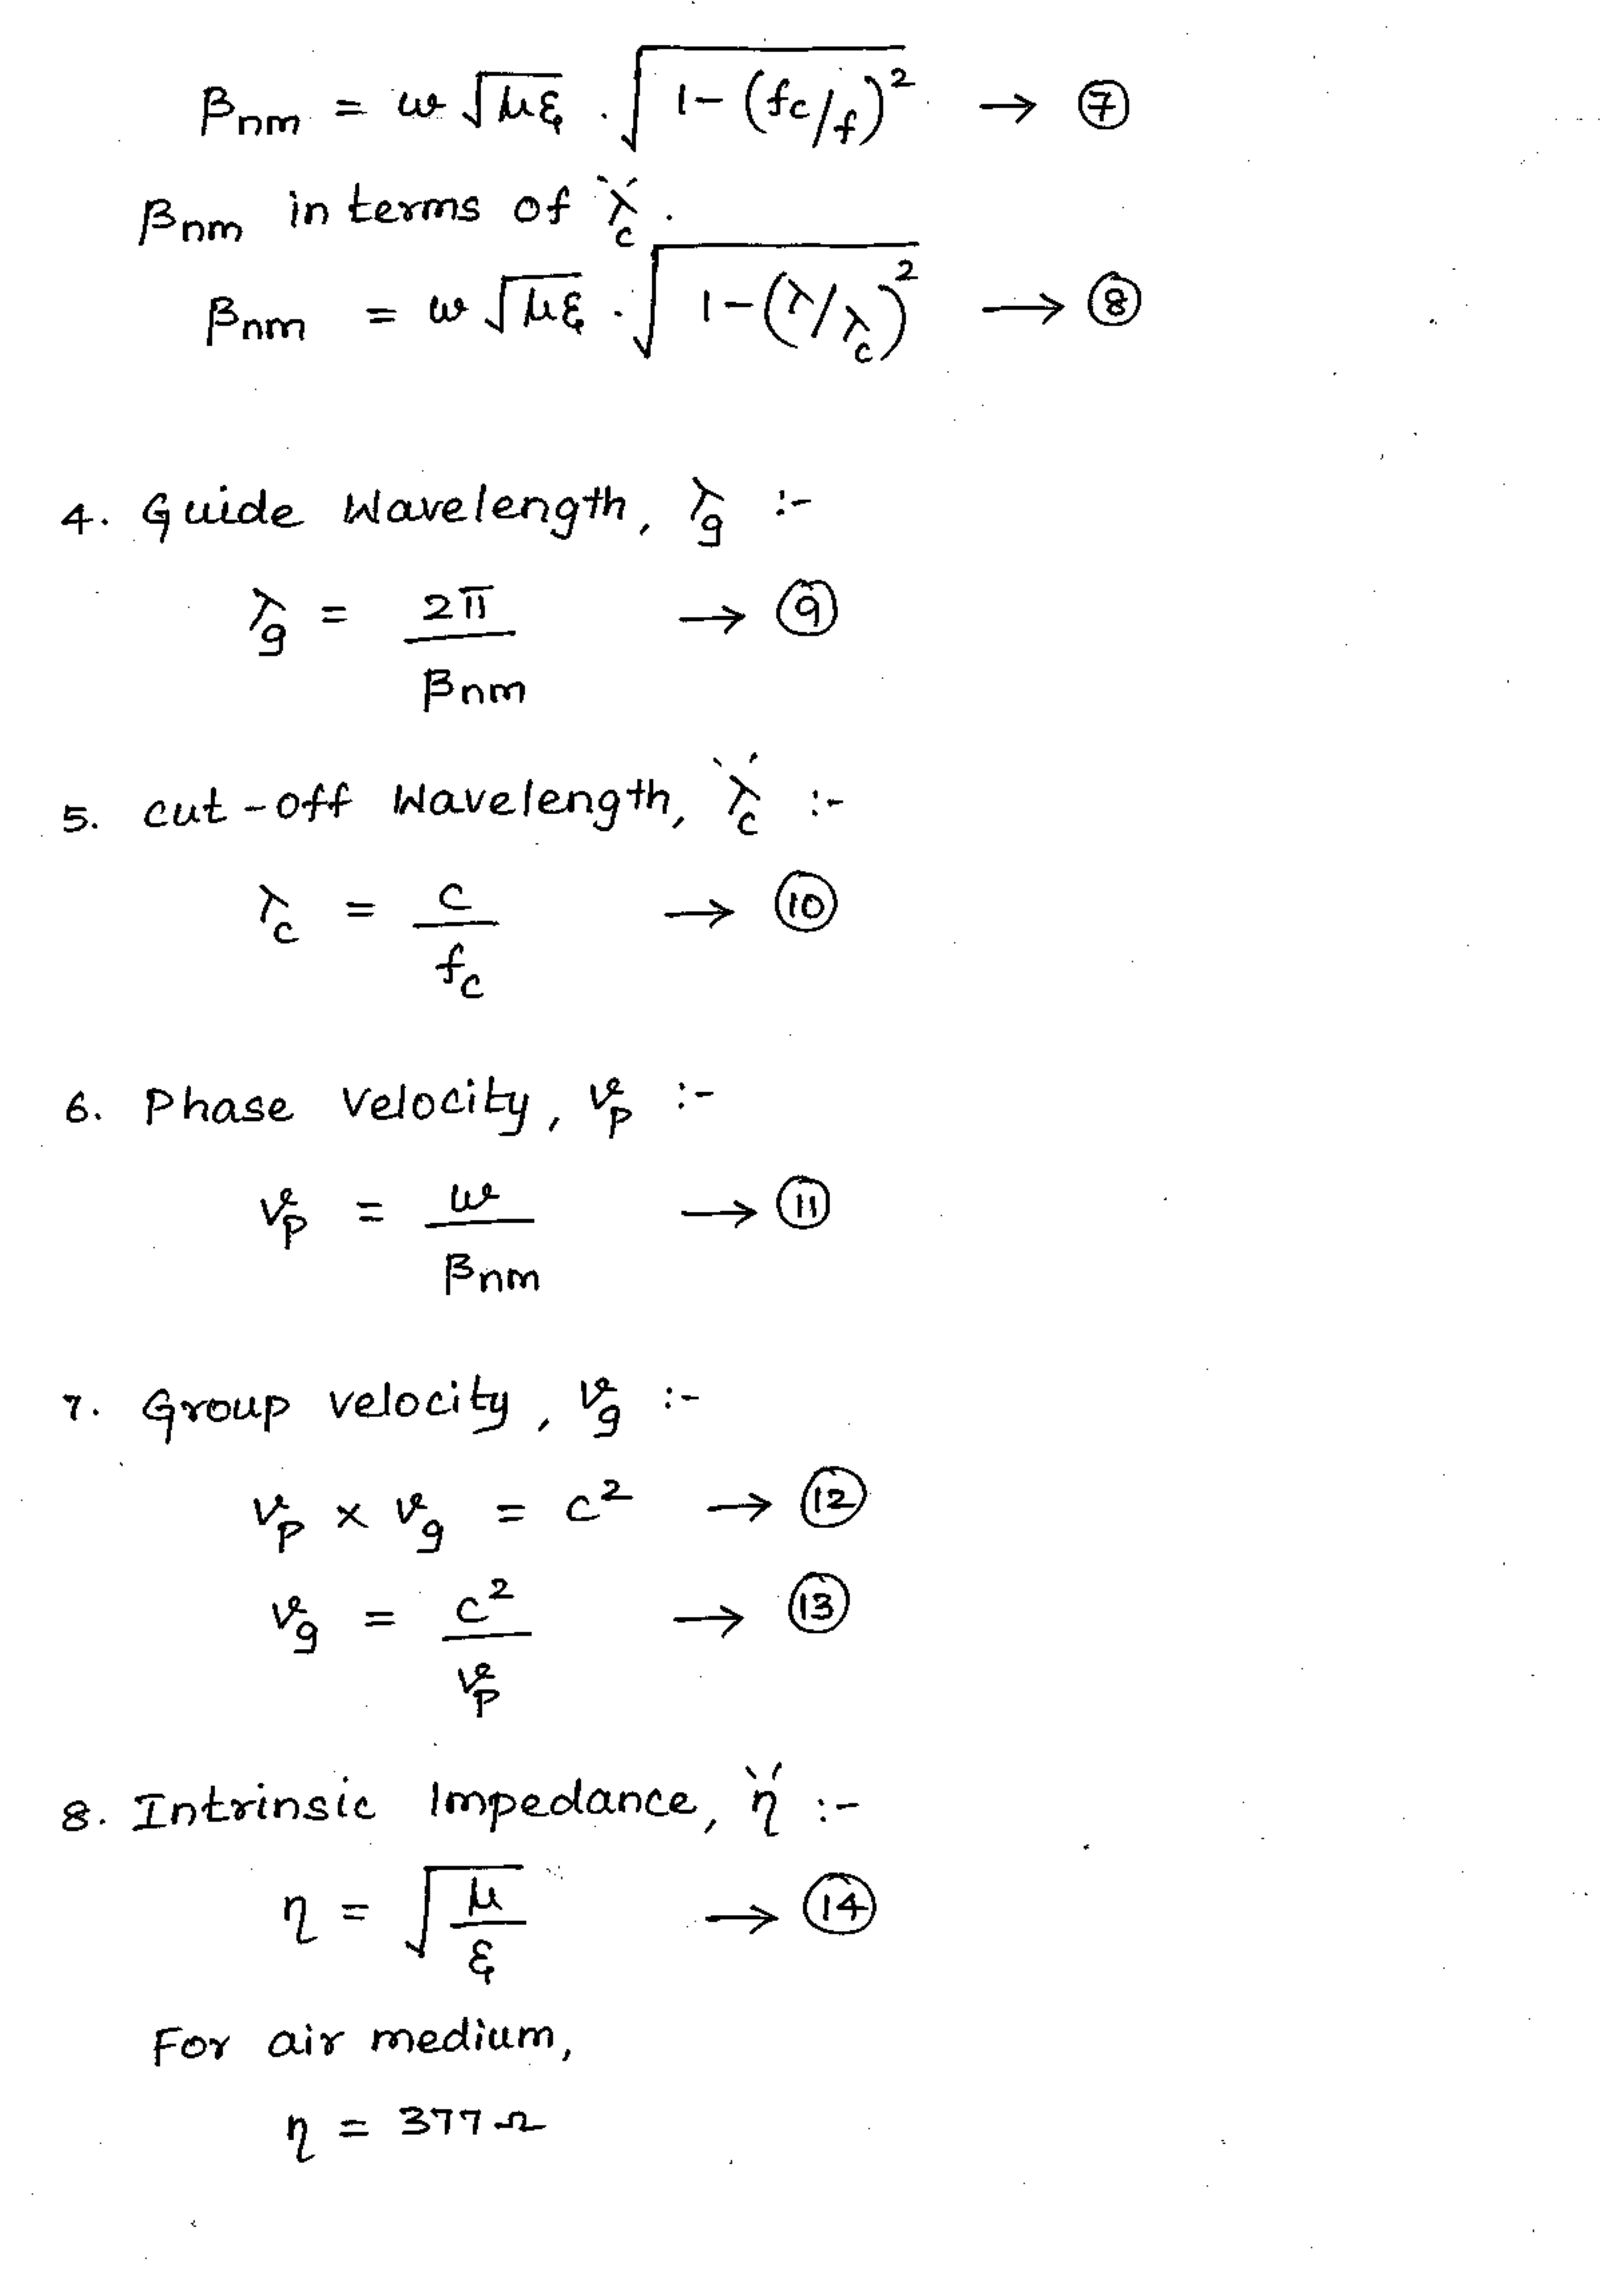 βnm = ω √με . √1-(fc/f)² → ⑦
βnm in terms of 'λc'.
βnm = ω √με . √1-(λ/λc)² → ⑧
4. Guide Wavelength, λg :-
λg = 2π/βnm → ⑨
5. cut-off Wavelength, 'λc' :-
λc = c/fc → ⑩
6. Phase Velocity, vp :-
vp = ω/βnm → ⑪
7. Group velocity, vg :-
vp × vg = c² → ⑫
vg = c²/vp → ⑬
8. Intrinsic Impedance, 'η' :-
η = √μ/ε → ⑭
For air medium,
η = 377Ω